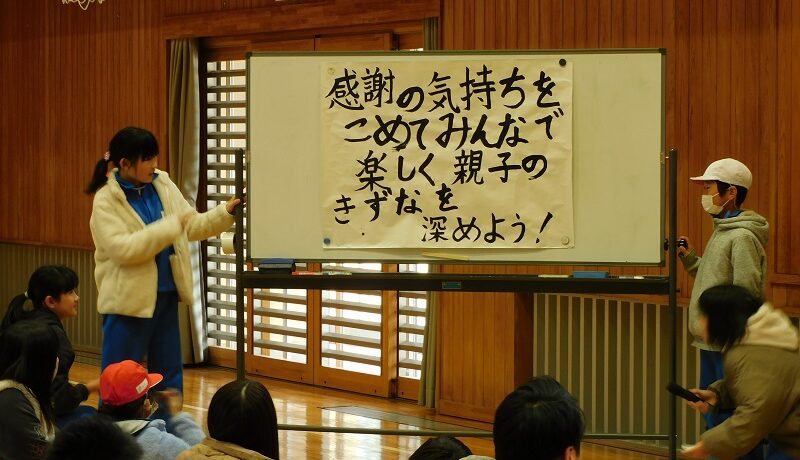 感謝の気持ちを
こめてみんなで
楽しく親子の
きずなを
深めよう!